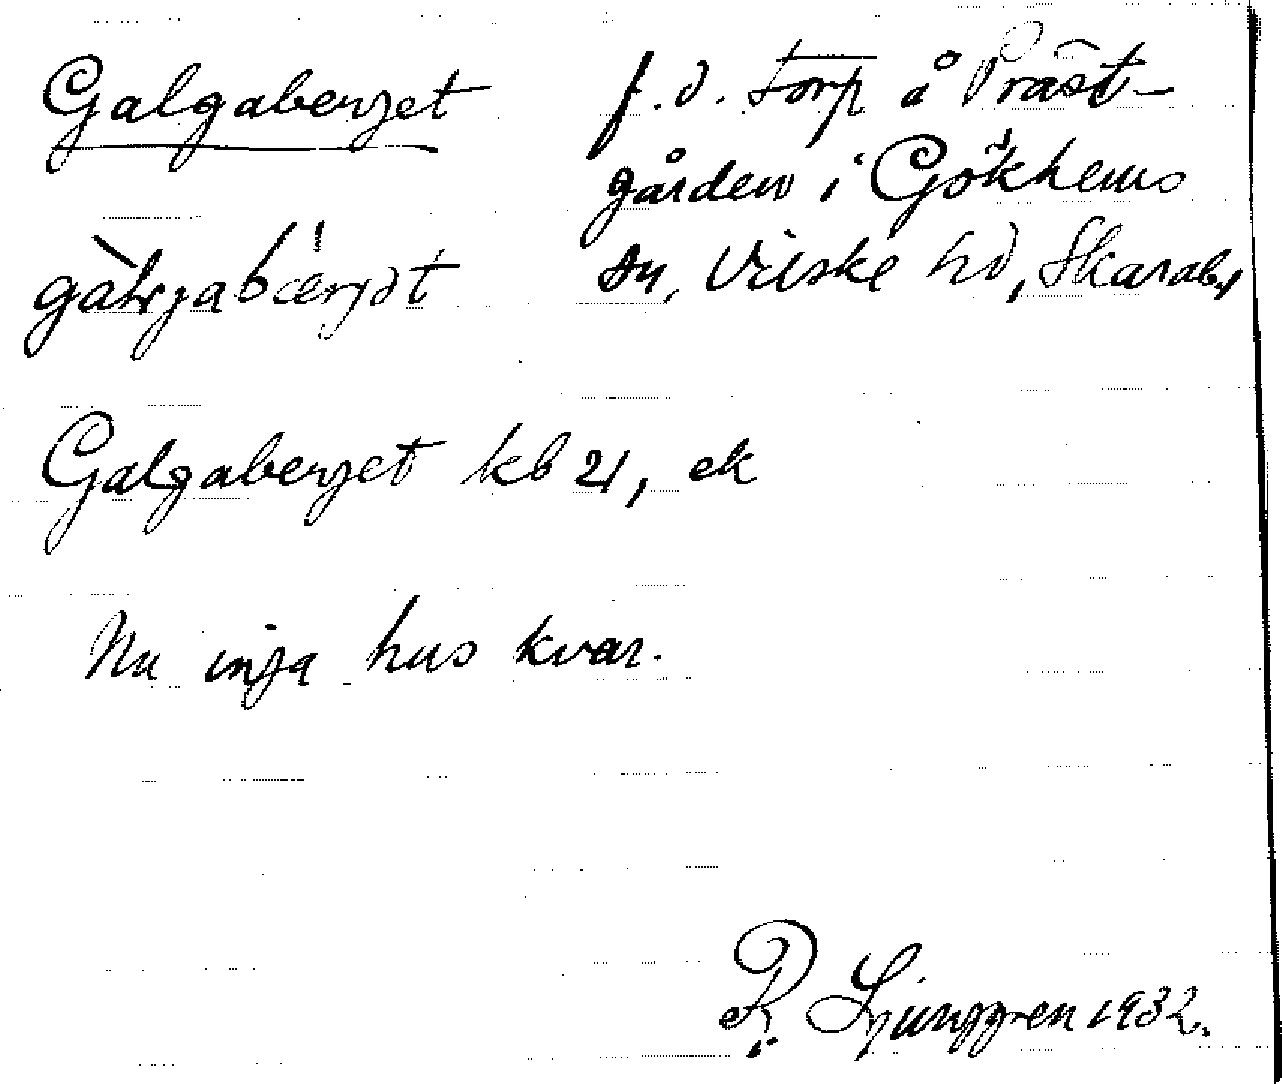 Galgaberget
f.d. torp å Präst-
gården i Gökhems
sn, Vilske hd, Skarab.
Galgaberget kb 21, ek
Nu inga hus kvar.
R. Ljunggren 1932.